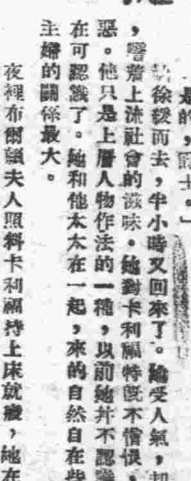 是的,爵士。」
徐緩而去,半小時又回來了。她受人氣,却
,嘗着上流社會的滋味。她對卡利福特既不憎恨,
惡。他只是上層人物作法的一種,以前她并不認識
在可認識了。她和他太太在一起,來的自然自在些
主婦的關係最大。
夜裡布爾頓夫人照料卡利福特上床就寢,她在